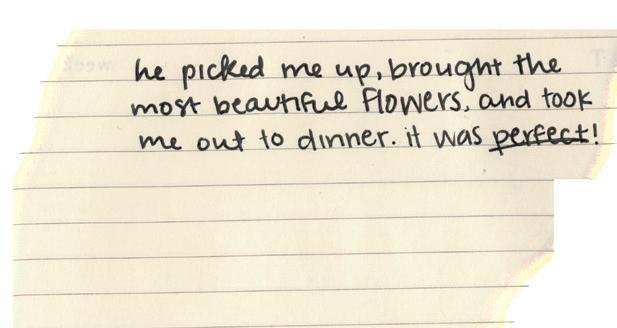 he picked me up, brought the
most beautiful flowers, and took
me out to dinner. it was perfect!